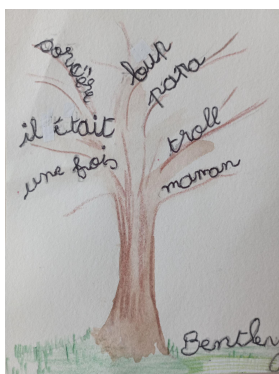 sorcière
loup
papa
il était
une fois
troll
maman
Bentley